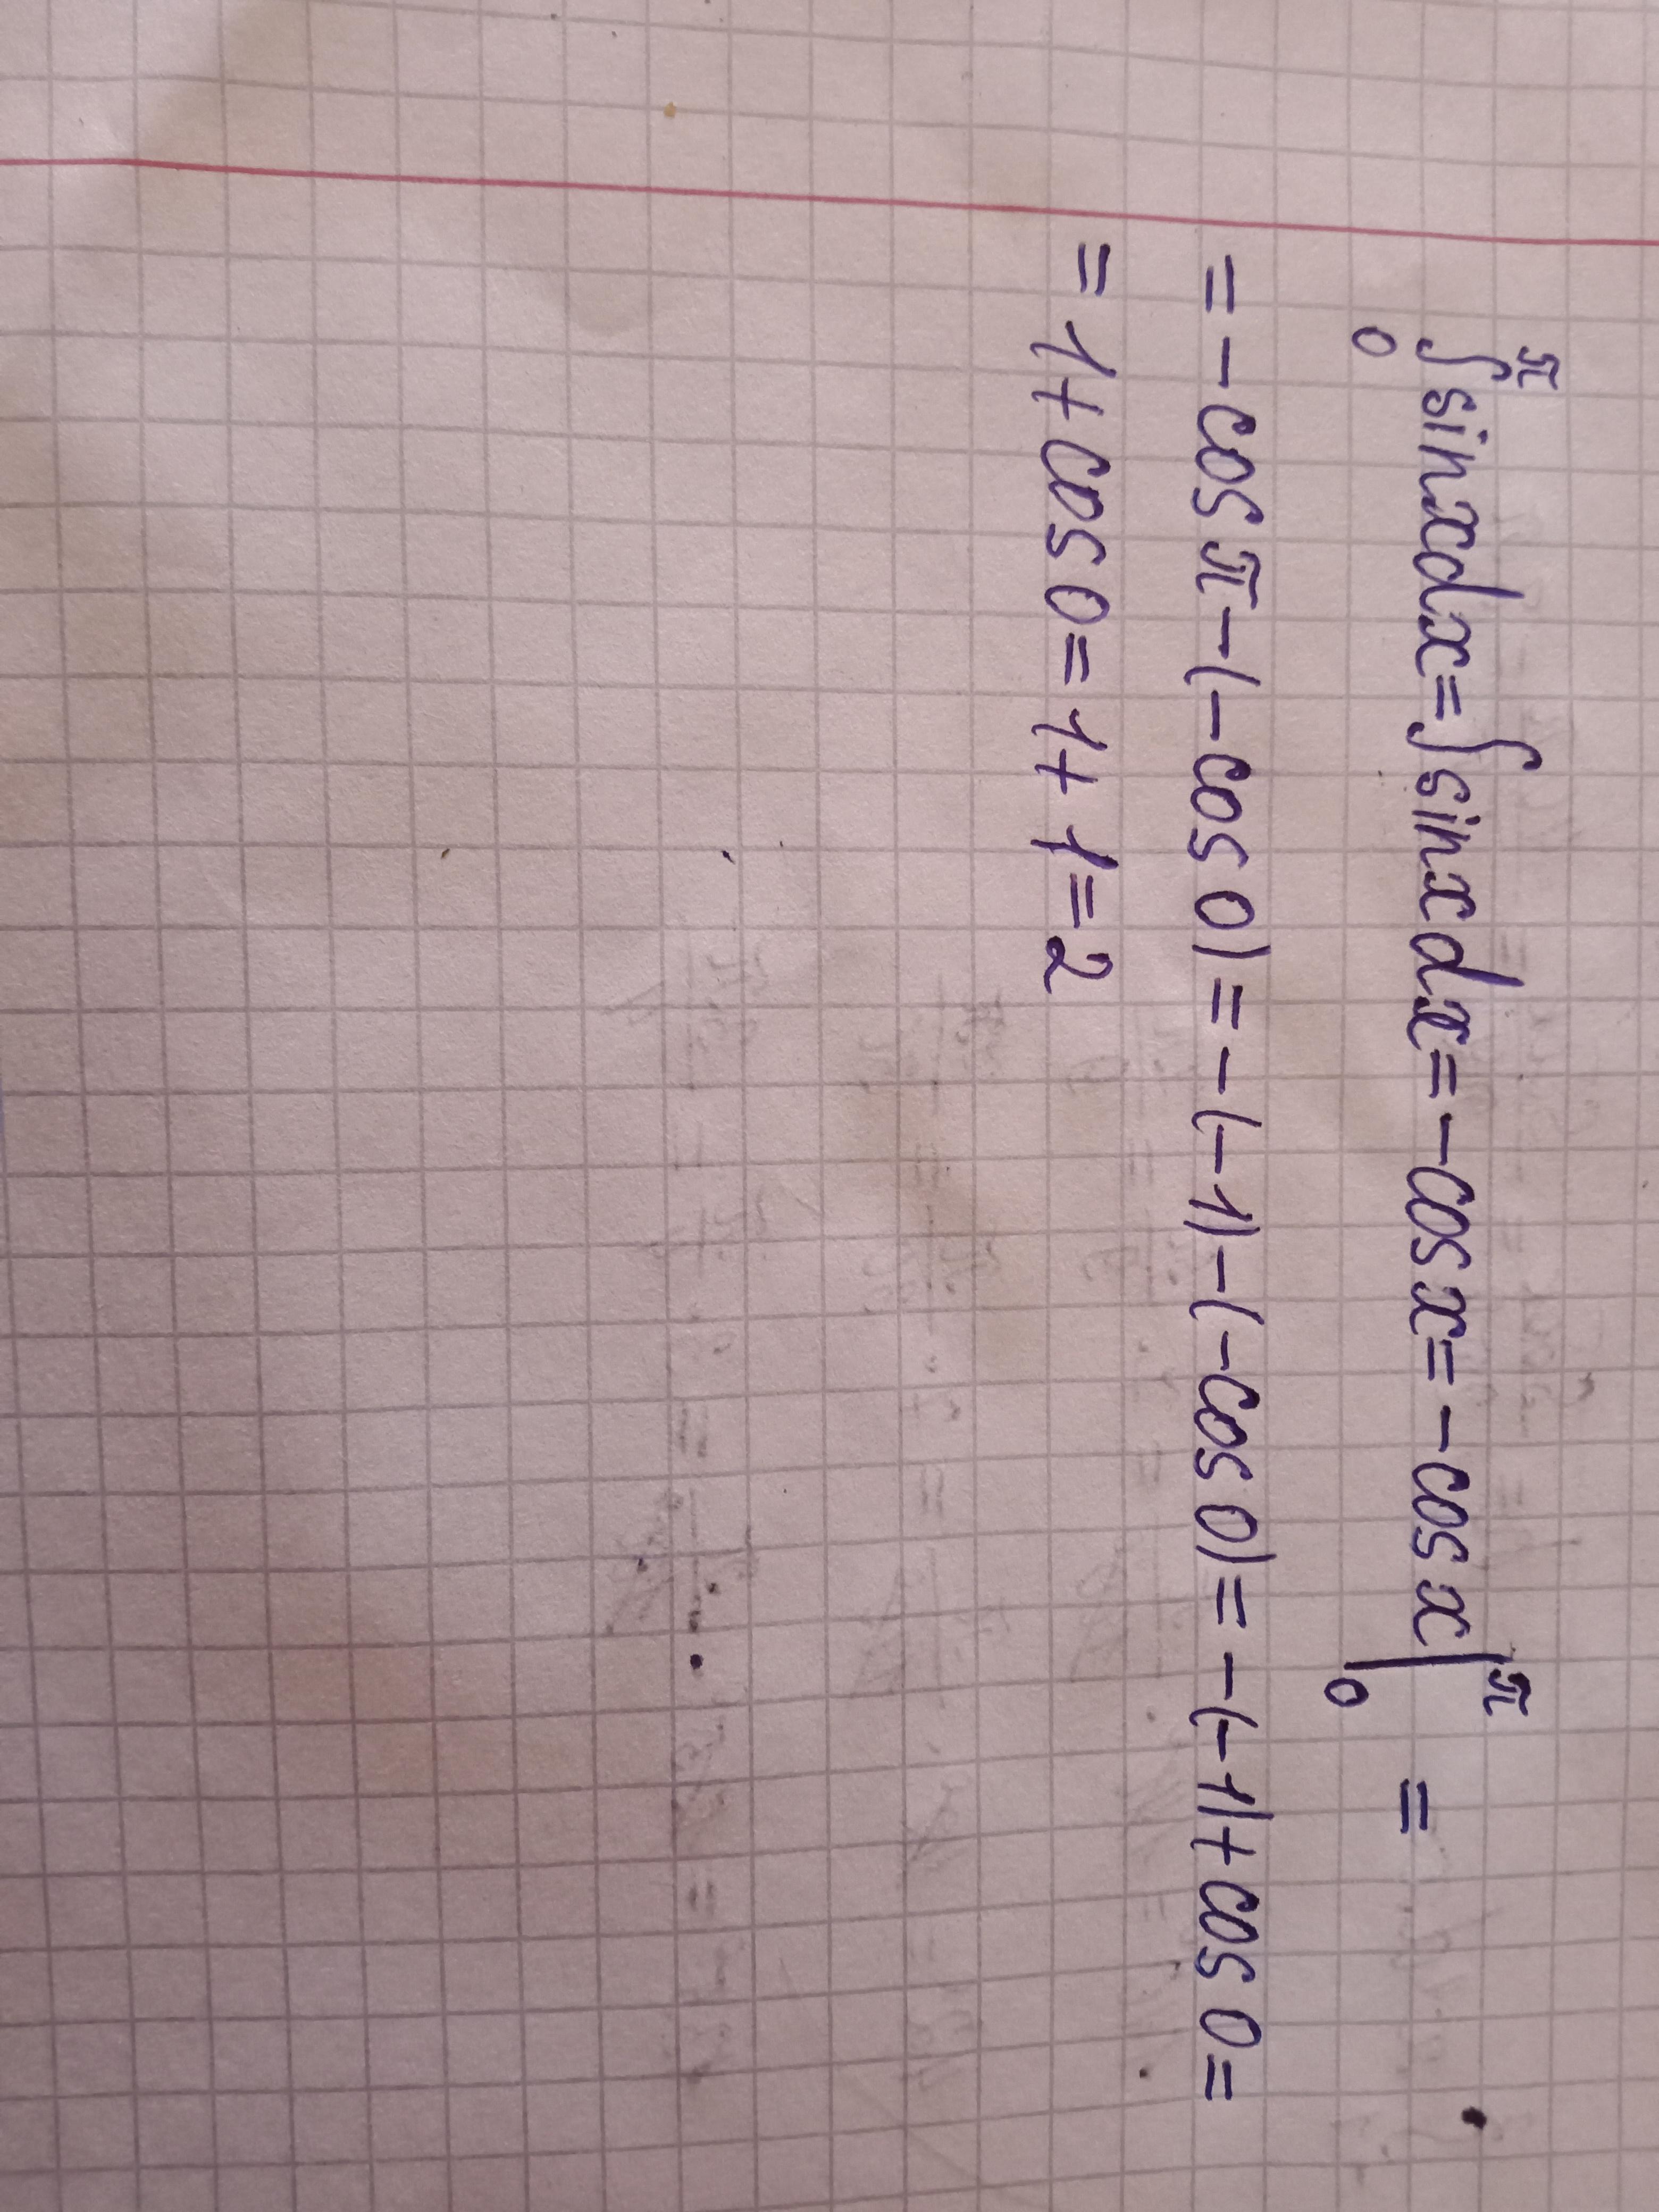 ∫₀^π sinxdx=∫sinxdx=-cosx=-cosx|₀^π =
=-cosπ-(-cos0)=-(-1)-(-cos0)=-(-1)+cos0=
=1+cos0=1+1=2